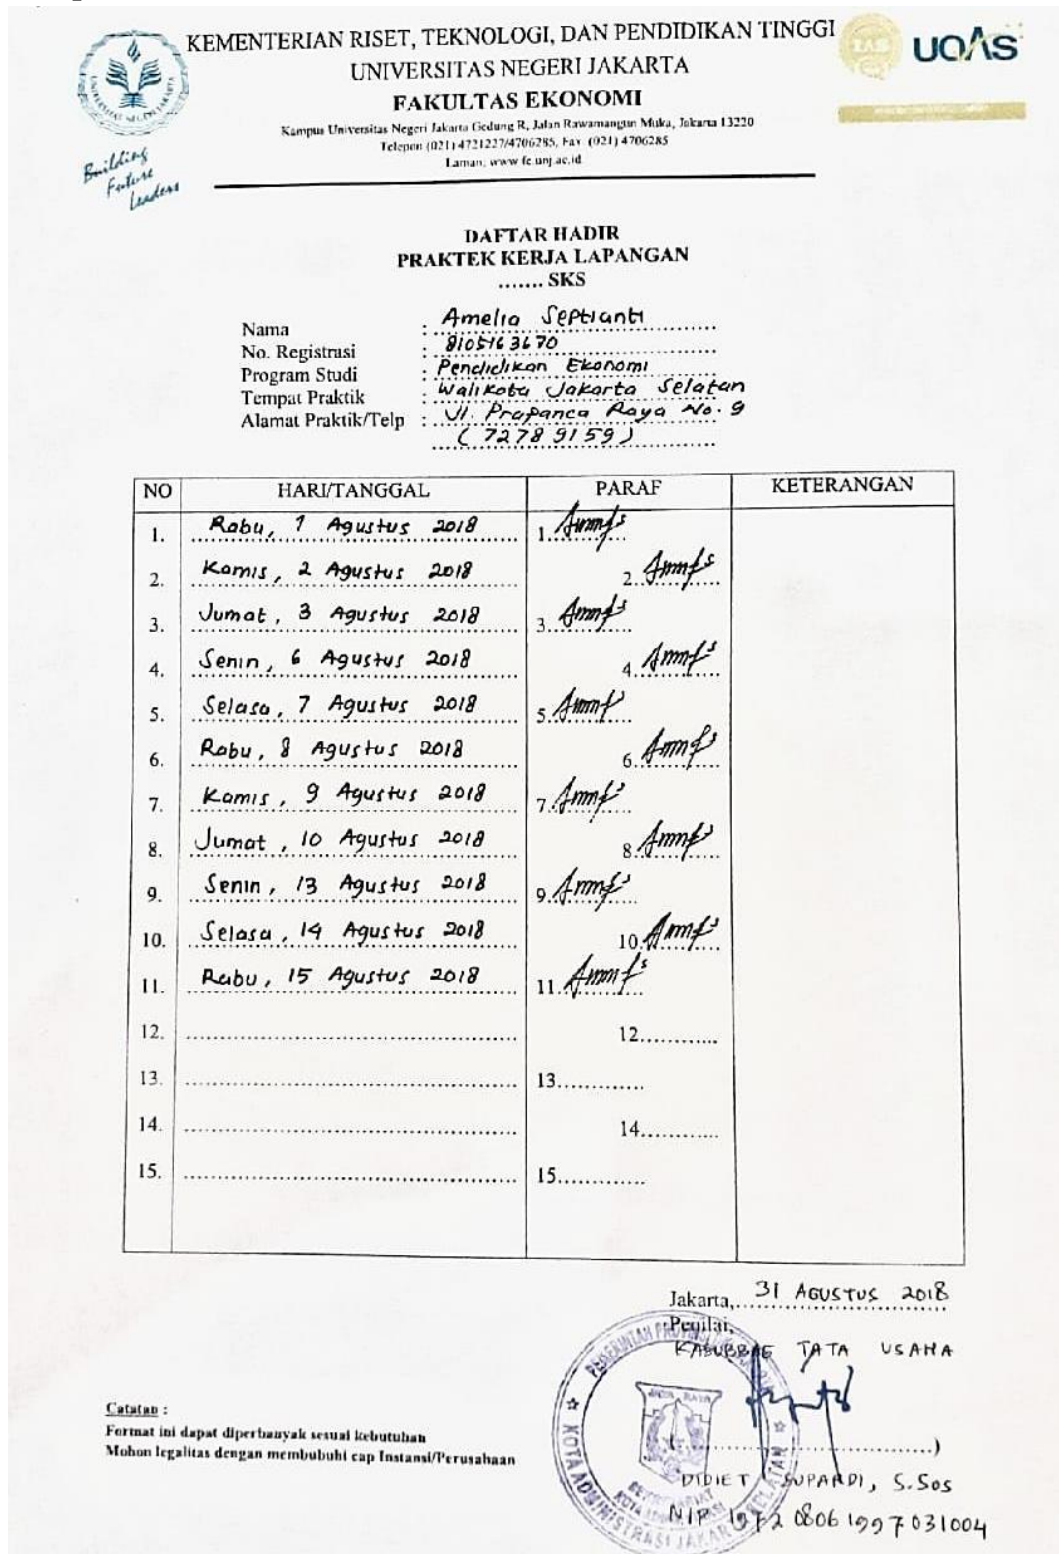 KEMENTERIAN RISET, TEKNOLOGI, DAN PENDIDIKAN TINGGI
UNIVERSITAS NEGERI JAKARTA
FAKULTAS EKONOMI
Kampus Universitas Negeri Jakarta Gedung R, Jalan Rawamangun Muka, Jakarta 13220
Telepon (021) 4721227/4706285, Fax. (021) 4706285
Laman: www.fe.unj.ac.id
UQAS
Building
Future
Leaders
DAFTAR HADIR
PRAKTEK KERJA LAPANGAN
....... SKS
Nama : Amelia Septianti
No. Registrasi : 8105163670
Program Studi : Pendidikan Ekonomi
Tempat Praktik : Walikota Jakarta Selatan
Alamat Praktik/Telp : Jl. Prapanca Raya No. 9
( 72789159 )
NO HARI/TANGGAL PARAF KETERANGAN
1. Rabu, 1 Agustus 2018 1.
2. Kamis, 2 Agustus 2018 2.
3. Jumat, 3 Agustus 2018 3.
4. Senin, 6 Agustus 2018 4.
5. Selasa, 7 Agustus 2018 5.
6. Rabu, 8 Agustus 2018 6.
7. Kamis, 9 Agustus 2018 7.
8. Jumat, 10 Agustus 2018 8.
9. Senin, 13 Agustus 2018 9.
10. Selasa, 14 Agustus 2018 10.
11. Rabu, 15 Agustus 2018 11.
12. 12............
13. 13............
14. 14............
15. 15............
Jakarta, 31 AGUSTUS 2018
Penilai,
KASUBBAG TATA USAHA
(..............................)
DIDIET SUPARDI, S.Sos
NIP 197208061997031004
Catatan :
Format ini dapat diperbanyak sesuai kebutuhan
Mohon legalitas dengan membubuhi cap Instansi/Perusahaan